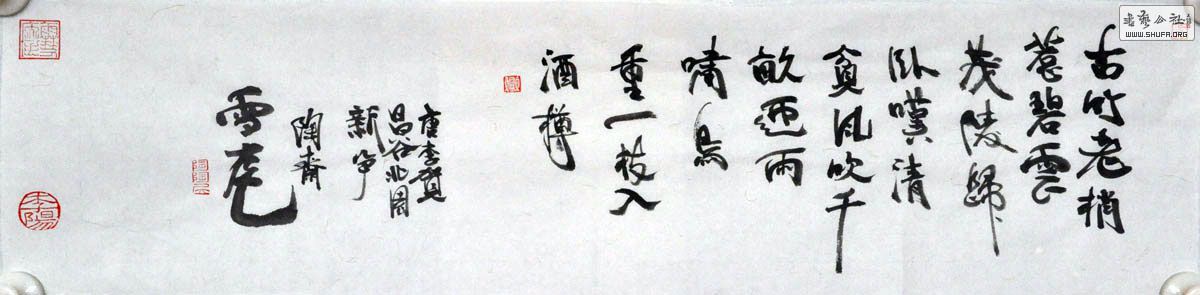 古竹老梢
惹碧雲
茂陵歸
臥嘆清
貧風吹千
畝迎雨
嘯鳥
重一枝入
酒樽
唐李賀
昌谷北園
新笋
陶齋
雪
書藝公社
WWW.SHUFA.ORG